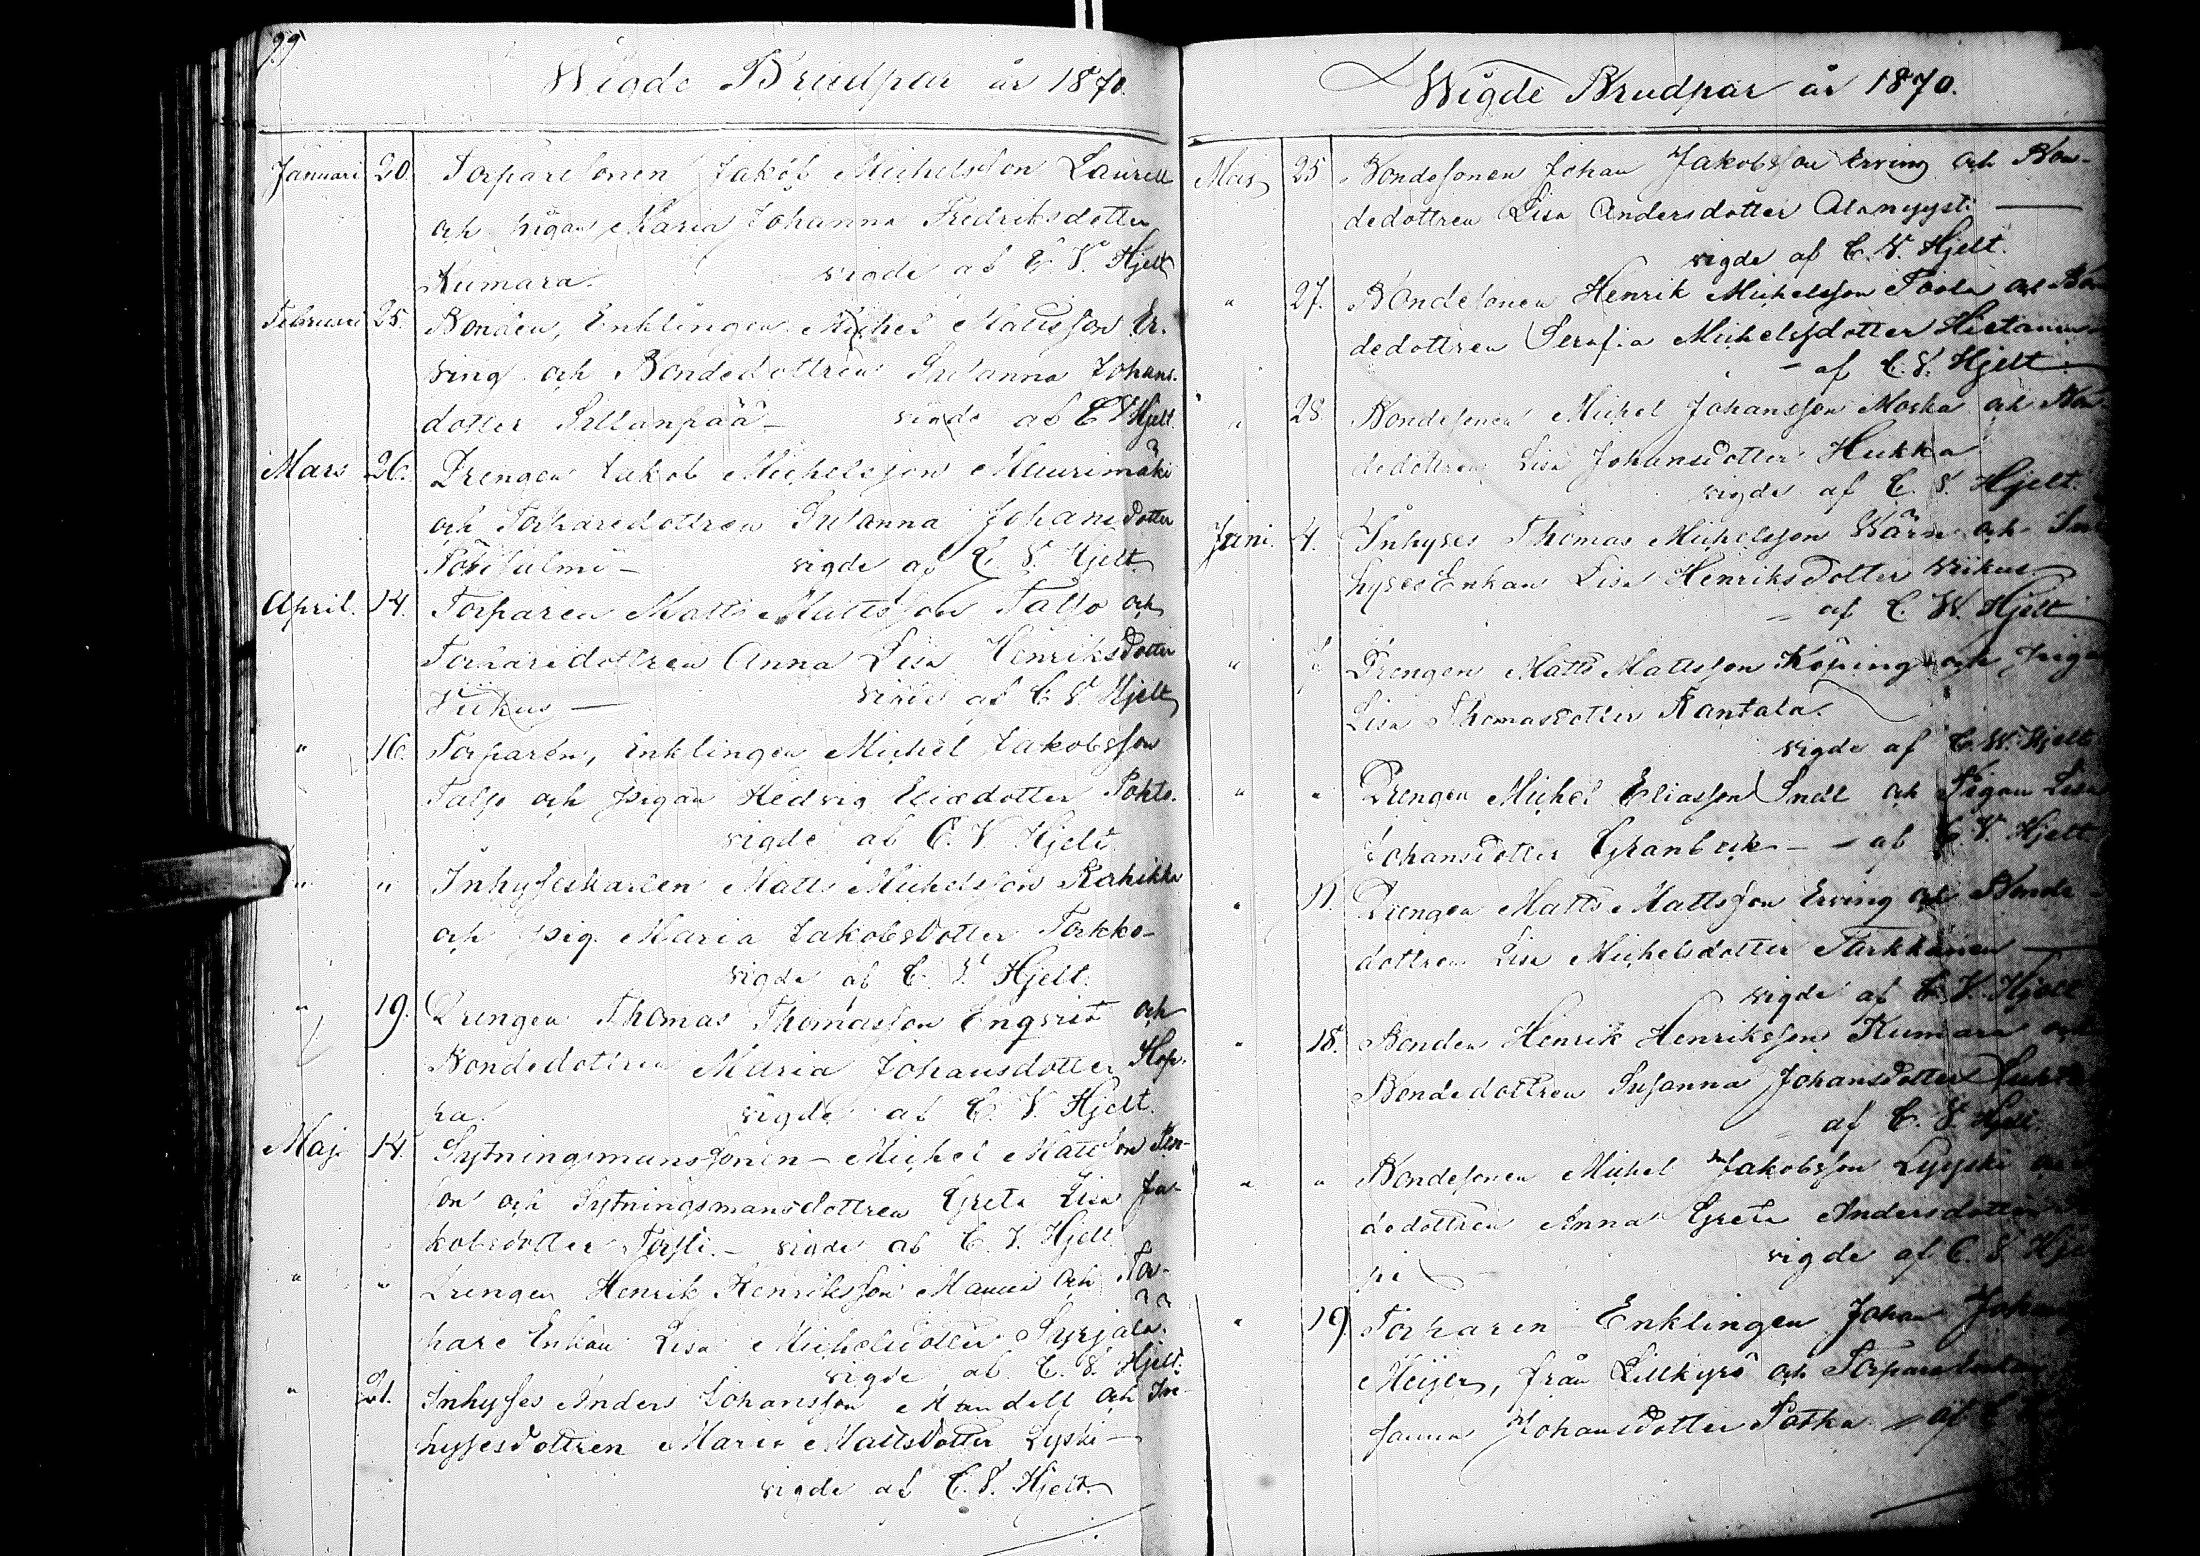 99.
Wigde Brudpar år 1870.
Januari 20. Torparesonen Jakob Michelsson Laurell
och pigan Maria Johanna Fredriksdotter
Kumara. vigde af C. V. Hjelt
Februari 25. Bonden, Enklingen Michel Mattsson Er-
ving och Bondedottren Susanna Johans-
dotter Sillanpää - vigde af C V Hjelt.
Mars 26. Drengen Jakob Michelsson Muurimäki
och Torparedottren Susanna Johansdotter
vigde af C. V. Hjelt
April. 14. Torparen Matts Mattsson Talso och
Torparedottren Anna Lisa Henriksdotter
Viikus - vigde af C. V. Hjelt
" 16. Torparen, Enklingen Michel Jakobsson
Talso och pigan Hedvig Eliædotter Pohto.
vigde af C. V. Hjelt.
" " Inhyseskarlen Matts Michelsson Rahikka
och pig. Maria Jakobsdotter Torkko-
vigde af C. V. Hjelt.
" 19. Drengen Thomas Thomasson Enqvist och
Bondedottren Maria Johansdotter Hop-
pa. vigde af C. V. Hjelt.
Maj 14. Sytningsmanssonen - Michel Mattsson
och Sytningsmansdottren Greta Lisa Ja-
kobsdotter Torsti. - vigde af C. V. Hjelt.
" " Drengen Henrik Henriksson Manni och Tor-
pare Enkan Lisa Michelsdotter Syrjälä.
vigde af C. V. Hjelt.
" 21. Inhyses Anders Johansson Mandell och In-
hysesdottren Maria Mattsdotter Lyski -
vigde af C. V. Hjelt.
Wigde Brudpar år 1870.
Maj 25 Bondesonen Johan Jakobsson Erving och Bon-
dedottren Lisa Andersdotter Alanyysti
vigde af C. V. Hjelt.
" 27. Bondesonen Henrik Michelsson Toola och Bon
dedottren Serafia Michelsdotter
- af C. V. Hjelt.
" 28 Bondesonen Michel Johansson Moska och Bon-
dedottren Lisa Johansdotter Hukka
vigde af C. V. Hjelt.
Juni. 4. Inhyses Thomas Michelsson Wärn och In-
hysesEnkan Lisa Henriksdotter Wiikus.
- af C. W. Hjelt
" Drengen Matts Mattsson Köping och pigan
Lisa Thomasdotter Rantala.
vigde af C. W. Hjelt
" " Drengen Michel Eliasson Snäll och Pigan Lisa
Johansdotter Granbeck - - af C. V. Hjelt.
" 11. Drengen Matts Mattsson Erving och Bonde
dottren Lisa Michelsdotter Tarkkanen
vigde af C. V. Hjelt
" 18. Bonden Henrik Henriksson Kumara och
Bondedottren Susanna Johansdotter
af C. V. Hjelt.
" " Bondesonen Michel Jakobsson Lyyski
dedottren Anna Greta Andersdotter
pi vigde af C. V. Hje
" 19 Torparen Enklingen Johan Johan
Meijer, från Lillkyrö och Torparedott
sanna Johansdotter Paska - af C